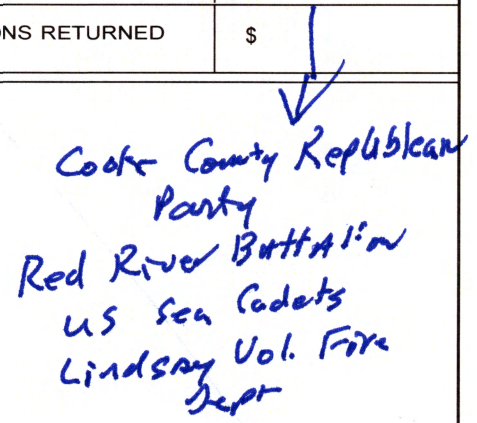 NS RETURNED $
Cooke County Republican
Party
Red River Battalion
US Sea Cadets
Lindsay Vol. Fire
Dept